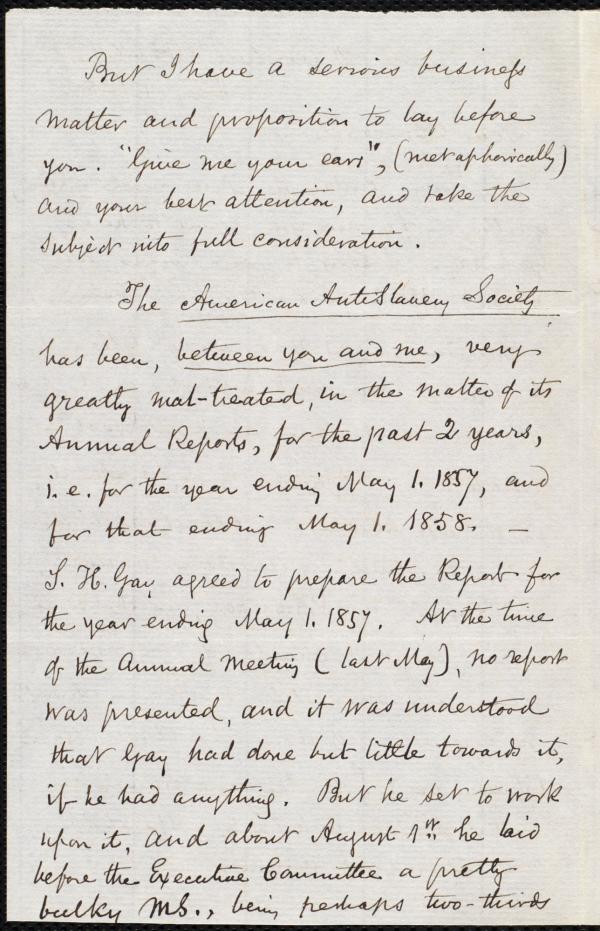 But I have a serious business
matter and proposition to lay before
you. "Give me your ears", (metaphorically)
and your best attention, and take the
subject into full consideration.
The American AntiSlavery Society
has been, between you and me, very
greatly mal-treated, in the matter of its
Annual Reports, for the past 2 years,
i.e. for the year ending May 1. 1857, and
for that ending May 1. 1858. —
S. H. Gay agreed to prepare the Report for
the year ending May 1. 1857. At the time
of the Annual Meeting (last May), no report
was presented, and it was understood
that Gay had done but little towards it,
if he had anything. But he set to work
upon it, and about August 1st he laid
before the Executive Committee a pretty
bulky MS., being perhaps two-thirds